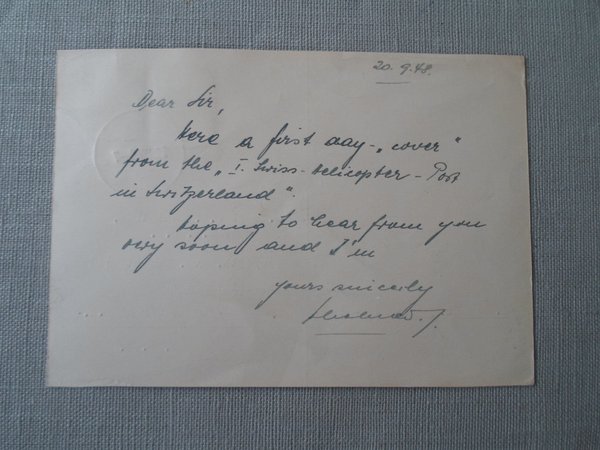 20. 9. 48.
Dear Sir,
Here a first day-„cover"
from the „I. Swiss-Helicopter-Post
in Switzerland".
Hoping to hear from you
very soon and I'm
yours sincerily